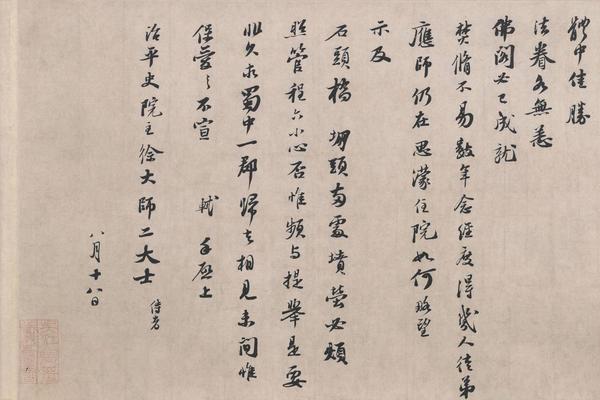 體中佳勝
法眷各無恙
佛閣必已成就
焚脩不易數年念經度得幾人徒弟
應師仍在思濛住院如何略望
示及
石頭橋 堋頭兩處墳塋必煩
照管程六小心否惟頻與提舉是要
非久求蜀中一郡歸去相見未間惟
保愛之不宣 軾 手啟上
治平史院主徐大師二大士 侍者
八月十八日